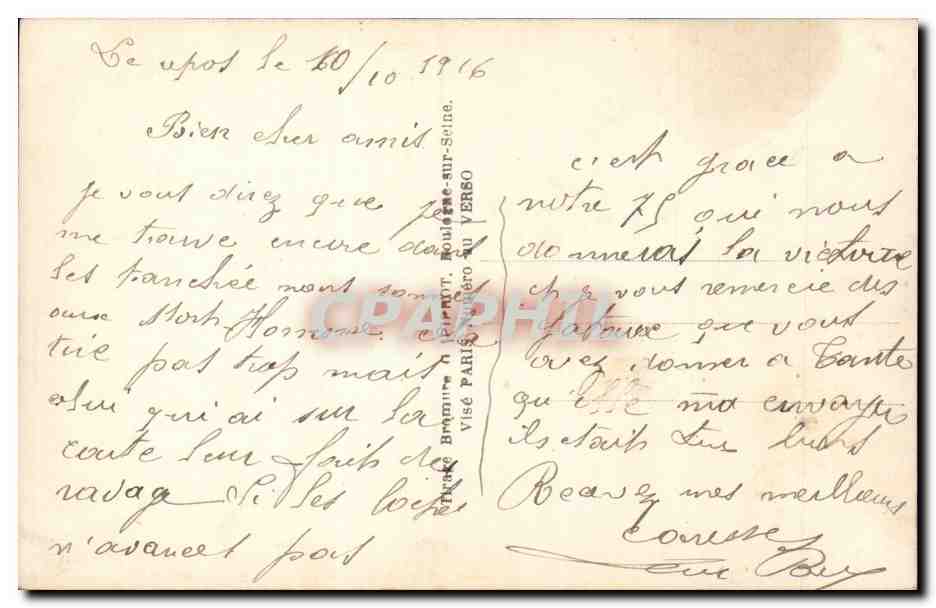 Le repos le 10/10 1916
Bien cher amis
je vous direz que je
me trouve encore dans
les tranchée nous sommes
aux Mort Homme
tire pas trop mais
celui qui ai sur la
carte leur fait des
ravage si les boches
n'avancet pas
c'est grace a
notre 75 qui nous
donneras la victoire
et je vous remercie des
gateaux que vous
avez donner a tante
qu'elle ma envoyer
ils etait tres biens
Recevez mes meilleurs
caresse
Tirage Bromure D. PIERROT, Boulogne-sur-Seine.
Visé PARIS, numéro au VERSO
CPAPHIL